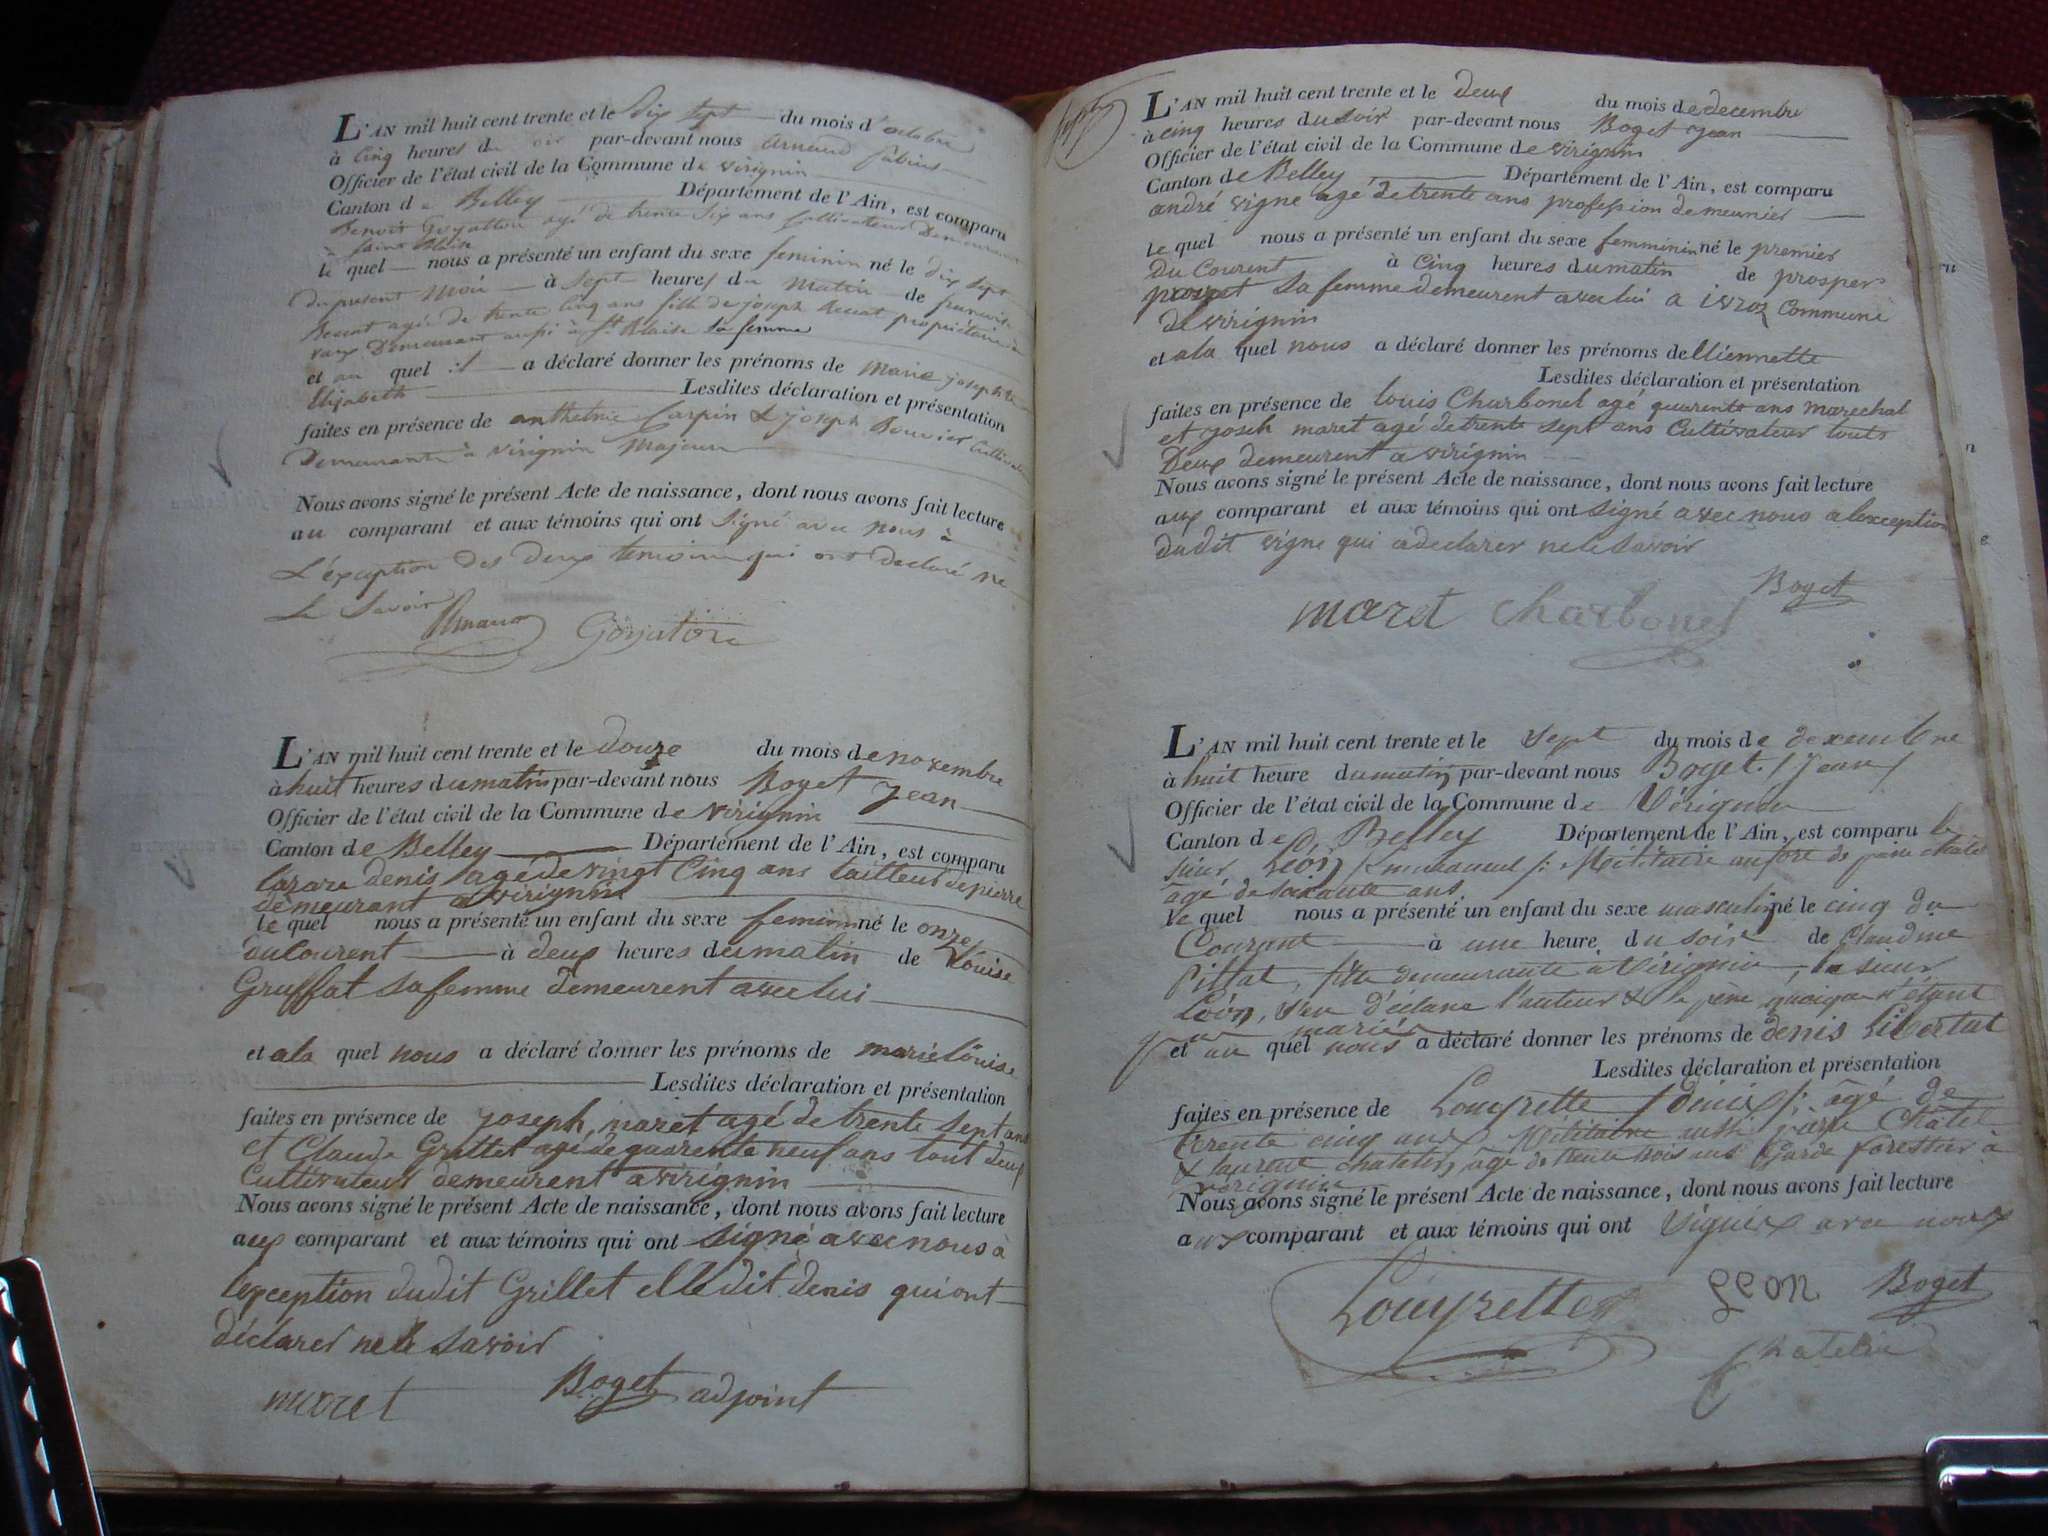 L'AN mil huit cent trente et le dix sept du mois d'octobre
à cinq heures du soir par-devant nous Arnaud fabius
Officier de l'état civil de la Commune de virignin
Canton de Belley Département de l'Ain, est comparu
Benoit Goyatton agé de trente six ans Cultivateur Demeurant
à Saint Blaise
le quel nous a présenté un enfant du sexe feminin né le dix sept
du present Mois à sept heures du Matin de francoise
agée de trente cinq ans fille de joseph propriétaire
Demeurant aussi à St Blaise sa femme
et au quel il a déclaré donner les prénoms de marie josephte
Elizabeth Lesdites déclaration et présentation
faites en présence de anthelme Carpin & joseph Bouvier Cultivateurs
Demeurants à virignin Majeurs
Nous avons signé le présent Acte de naissance, dont nous avons fait lecture
au comparant et aux témoins qui ont signé avec nous à
L'éxception des deux temoins qui ont declaré ne
Le Savoir
Arnaud Goyaton
L'AN mil huit cent trente et le douze du mois de novembre
à huit heures du matin par-devant nous Boget jean
Officier de l'état civil de la Commune de virignin
Canton de Belley Département de l'Ain, est comparu
lazare denis agé de vingt Cinq ans tailleur de pierre
demeurant a virignin
le quel nous a présenté un enfant du sexe feminin né le onze
du Courent à deux heures du matin de Louise
Gruffat sa femme demeurent avec lui
et a la quel nous a déclaré donner les prénoms de marie Louise
Lesdites déclaration et présentation
faites en présence de joseph maret agé de trente sept ans
et Claude Grillet agé de quarente neuf ans tout deux
Cultivateurs demeurent a virignin
Nous avons signé le présent Acte de naissance, dont nous avons fait lecture
aux comparant et aux témoins qui ont signé avec nous à
lexception dudit Grillet et ledit denis qui ont
déclarer ne le savoir
maret Boget adjoint
L'AN mil huit cent trente et le deux du mois de decembre
à cinq heures du soir par-devant nous Boget jean
Officier de l'état civil de la Commune de virignin
Canton de Belley Département de l'Ain, est comparu
andré vigne agé de trente ans profession de meunier
le quel nous a présenté un enfant du sexe femminin né le premier
du Courent à Cinq heures du matin de prosper
sa femme demeurent avec lui a ivroz Commune
de virignin
et a la quel nous a déclaré donner les prénoms de Etiennette
Lesdites déclaration et présentation
faites en présence de louis Charbonel agé quarente ans marechal
et joseh maret agé de trente sept ans Cultivateur touts
Deux demeurent a virignin
Nous avons signé le présent Acte de naissance, dont nous avons fait lecture
aux comparant et aux témoins qui ont signé avec nous a lexception
dudit vigne qui a declarer ne le savoir
Boget
maret Charbonel
L'AN mil huit cent trente et le sept du mois de dexembre
à huit heure du matin par-devant nous Boget (jean)
Officier de l'état civil de la Commune de Virignin
Canton de Belley Département de l'Ain, est comparu le
sieur Léon Militaire au fort de pierre chatel
âgé de soixante ans
le quel nous a présenté un enfant du sexe masculin né le cinq du
Courant à une heure du soir de Claudine
Pillat, fille demeurante à Virignin, le sieur
Léon, s'en déclare l'auteur & le père quoique n'étant
pas mariés
et au quel nous a déclaré donner les prénoms de denis libertat
Lesdites déclaration et présentation
faites en présence de Louyrette (denis) âgé de
trente cinq ans, Militaire au pierre Châtel
& laurent chatelin, âgé de trente trois ans Garde forestier à
virignin
Nous avons signé le présent Acte de naissance, dont nous avons fait lecture
aux comparant et aux témoins qui ont signés avec nous
Louyrette Leon Boget
Chatelin